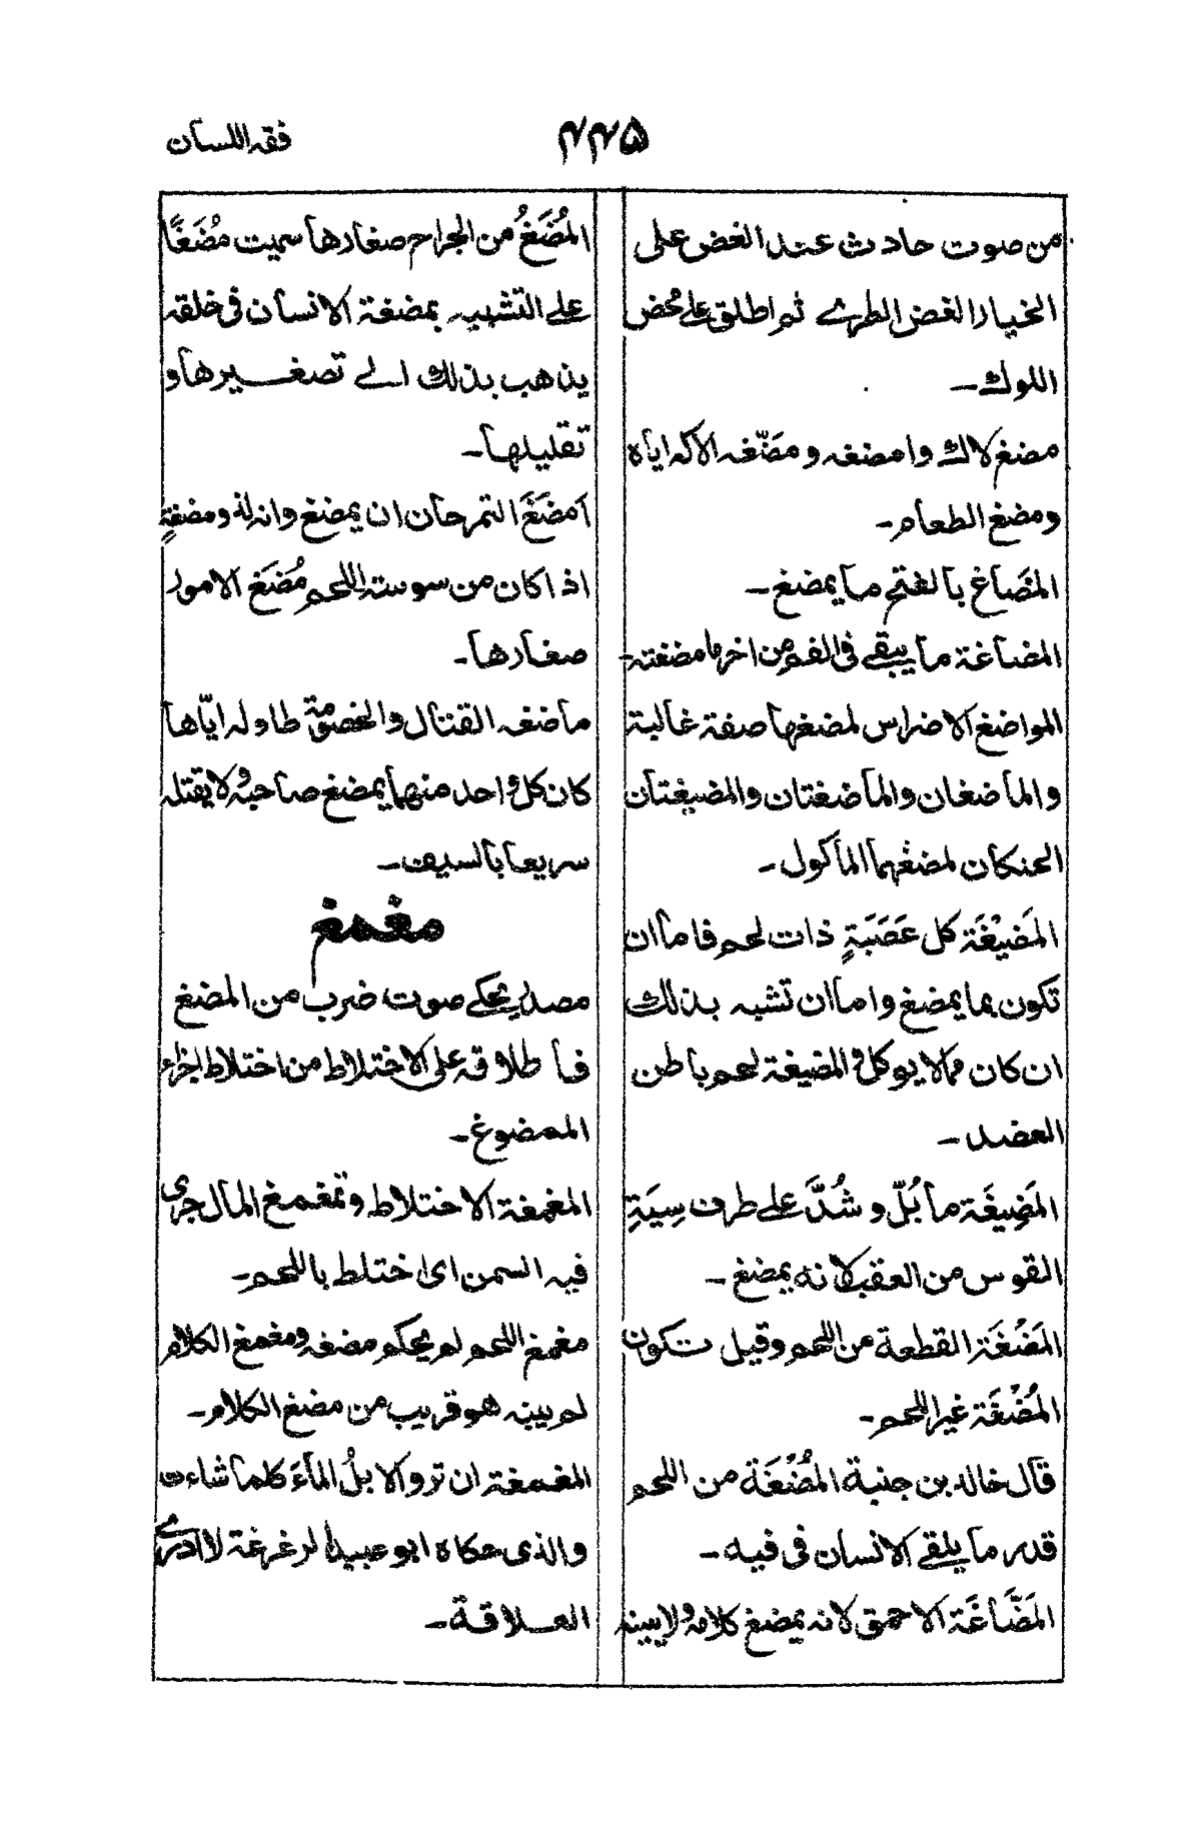 فقه اللسان
۴۴۵
من صوت حادث عند الغض على
الخيار الغض الطرے ثم اطلق على محض
اللوك۔
مضغ لاك وامضغه ومضّغه الاكه اياه
ومضغ الطعام۔
المَضَاغ بالفتح ما يمضغ۔
المضاغة ما يبقے فى الفم من اخر ما مضغته۔
المواضغ الاضراس لمضغها صفة غالبة
والماضغان والماضغتان والمضيغتان
الحنكان لمضغهما الماكول۔
المَضيْغَة كل عَصَبَةٍ ذات لحم فاما ان
تكون بما يمضغ واما ان تشبه بذلك
ان كان مما لا يوكل والمضيغة لحم باطن
العضد۔
المَضِيغَة ما بُلّ وشُدَّ على طرف سِيَةِ
القوس من العقب لانه يمضغ۔
المَضْغَة القطعة من اللحم وقيل تكون
المُضْغَة غير اللحم۔
قال خالد بن جنبة المُضْغَة من اللحم
قدر ما يلقے الانسان فى فيه۔
المَضَّاغَة الاحمق لانه يمضغ كلامه ولا يبينه
المُضَغُ من الجراح صغارها سميت مُضَغًا
على التشبيه بمضغة الانسان فى خلقه
يذهب بذلك الے تصغيرها و
تقليلها۔
اَمضَغَ التمر حان ان يمضغ وانه لذو مضغةٍ
اذا كان من سوسته اللحم مُضَغ الامور
صغارها۔
ماضغه القتال والخصومة طاوله ايّاها
كان كل واحد منهما يمضغ صاحبه ولا يقتله
سريعا بالسيف۔
مغمغ
مصدر يحكے صوت ضرب من المضغ
فاطلاقه على الاختلاط من اختلاط اجزاء
الممضوغ۔
المغمغة الاختلاط وتمغمغ المال جرى
فيه السمن اى اختلط باللحم۔
مغمغ اللحم لم يحكم مضغه ومغمغ الكلام
لم يبينه هو قريب من مضغ الكلام۔
المغمغة ان ترو الابلُ الماءَ كلما شاءت
والذى حكاه ابو عبيد الرغرغة لا ادرے
العلاقة۔